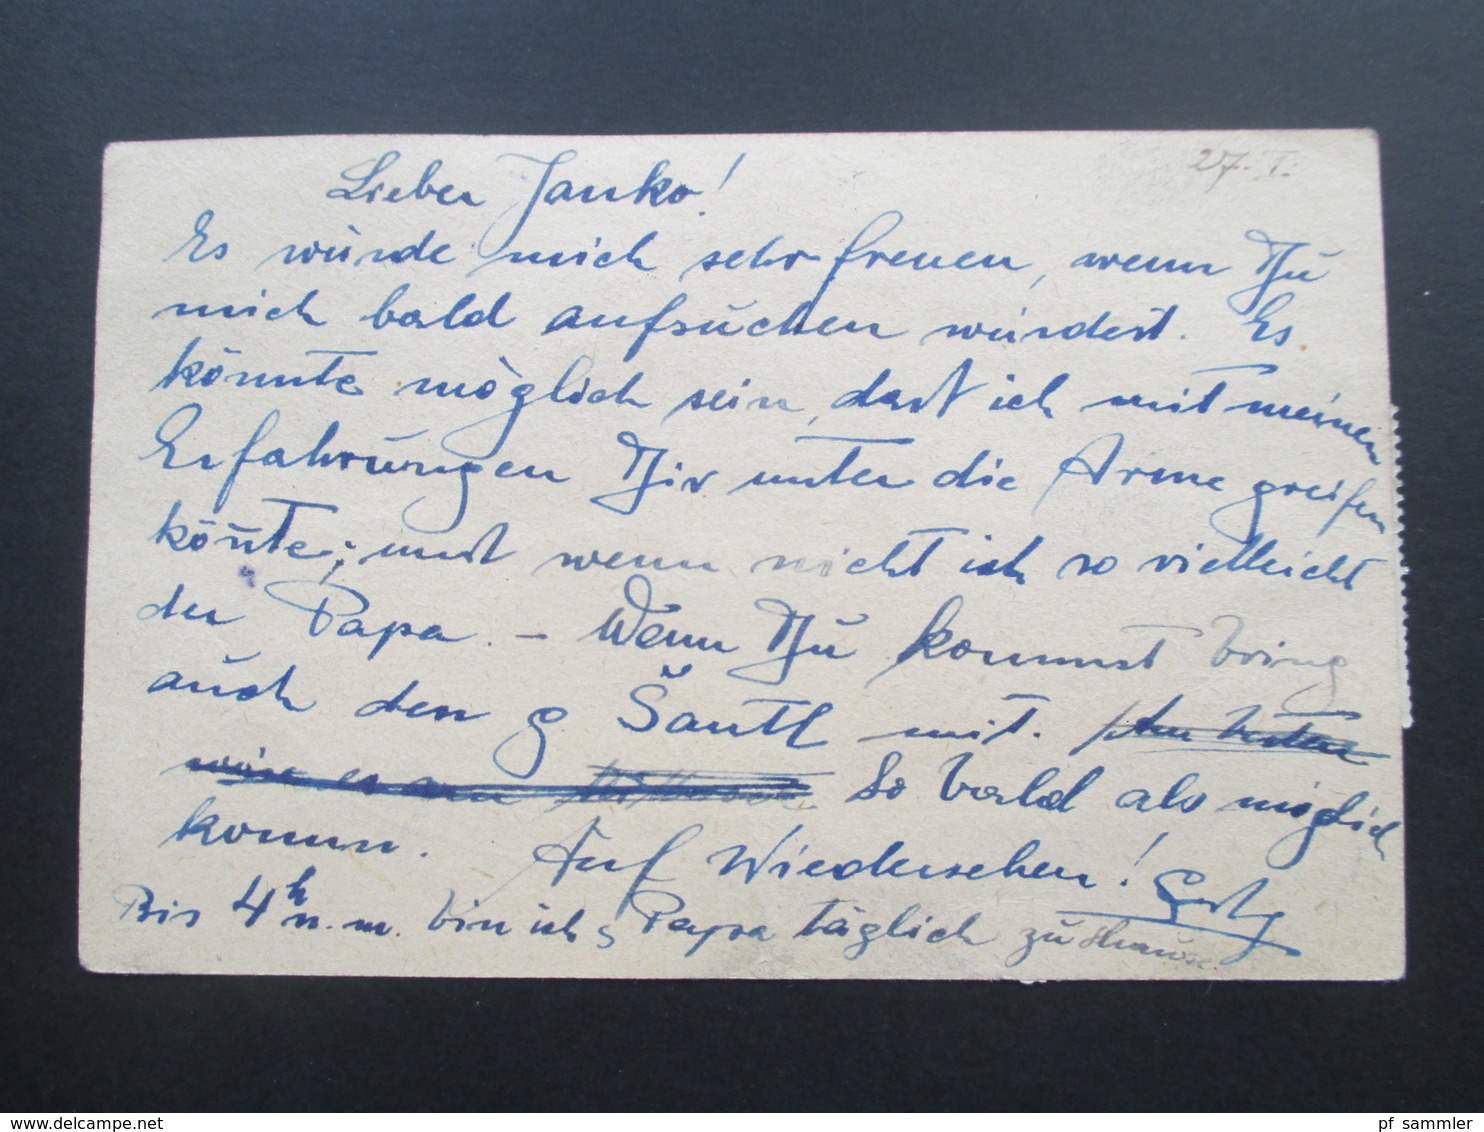 27. I.
Lieber Janko!
Es würde mich sehr freuen, wenn Du
mich bald aufsuchen würdest. Es
könnte möglich sein, dast ich mit meinen
Erfahrungen Dir unter die Arme greifen
kön̄te; und wenn nicht ich so vielleicht
der Papa. – Wenn Du kommst bring
auch den g. Šantl mit. Am besten
wäre es am So bald als möglich
komm. Auf Wiedersehen!
Bis 4h n. m. bin ich Papa täglich zu Hause
delcampe.net
pf_sammler